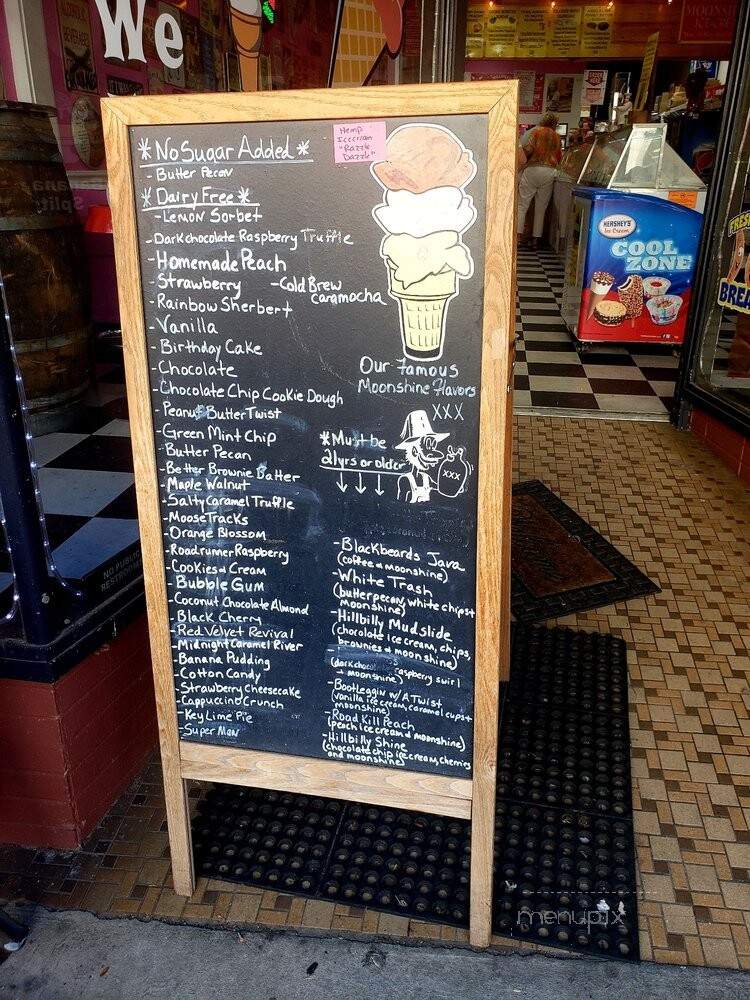 We
* No Sugar Added *
- Butter Pecan
* Dairy Free *
- Lemon Sorbet
- Dark chocolate Raspberry Truffle
- Homemade Peach
- Strawberry
- Cold Brew
caramocha
- Rainbow Sherbert
- Vanilla
- Birthday Cake
- Chocolate
- Chocolate Chip Cookie Dough
- Peanut Butter Twist
- Green Mint Chip
- Butter Pecan
- Better Brownie Batter
- Maple Walnut
- Salty Caramel Truffle
- Moose Tracks
- Orange Blossom
- Roadrunner Raspberry
- Cookies n Cream
- Bubble Gum
- Coconut Chocolate Almond
- Black Cherry
- Red Velvet Revival
- Midnight Caramel River
- Banana Pudding
- Cotton Candy
- Strawberry Cheesecake
- Cappuccino Crunch
- Key Lime Pie
- Super Man
Hemp
Icecream
"Razzle
Dazzle"
Our Famous
Moonshine Flavors
XXX
*Must be
21yrs or older
XXX
- Blackbeards Java
(coffee + moonshine)
- White Trash
(butter pecan, white chips +
moonshine)
- Hillbilly Mudslide
(chocolate ice cream, chips,
brownies + moonshine)
(dark raspberry swirl
+ moonshine)
- Bootleggin w/A Twist
(vanilla ice cream, caramel cups +
moonshine)
- Road Kill Peach
(peach ice cream + moonshine)
- Hillbilly Shine
(chocolate chip ice cream, cherries
and moonshine)
HERSHEY'S
Ice Cream
COOL
ZONE
NO PUBLIC
RESTROOM
menupix